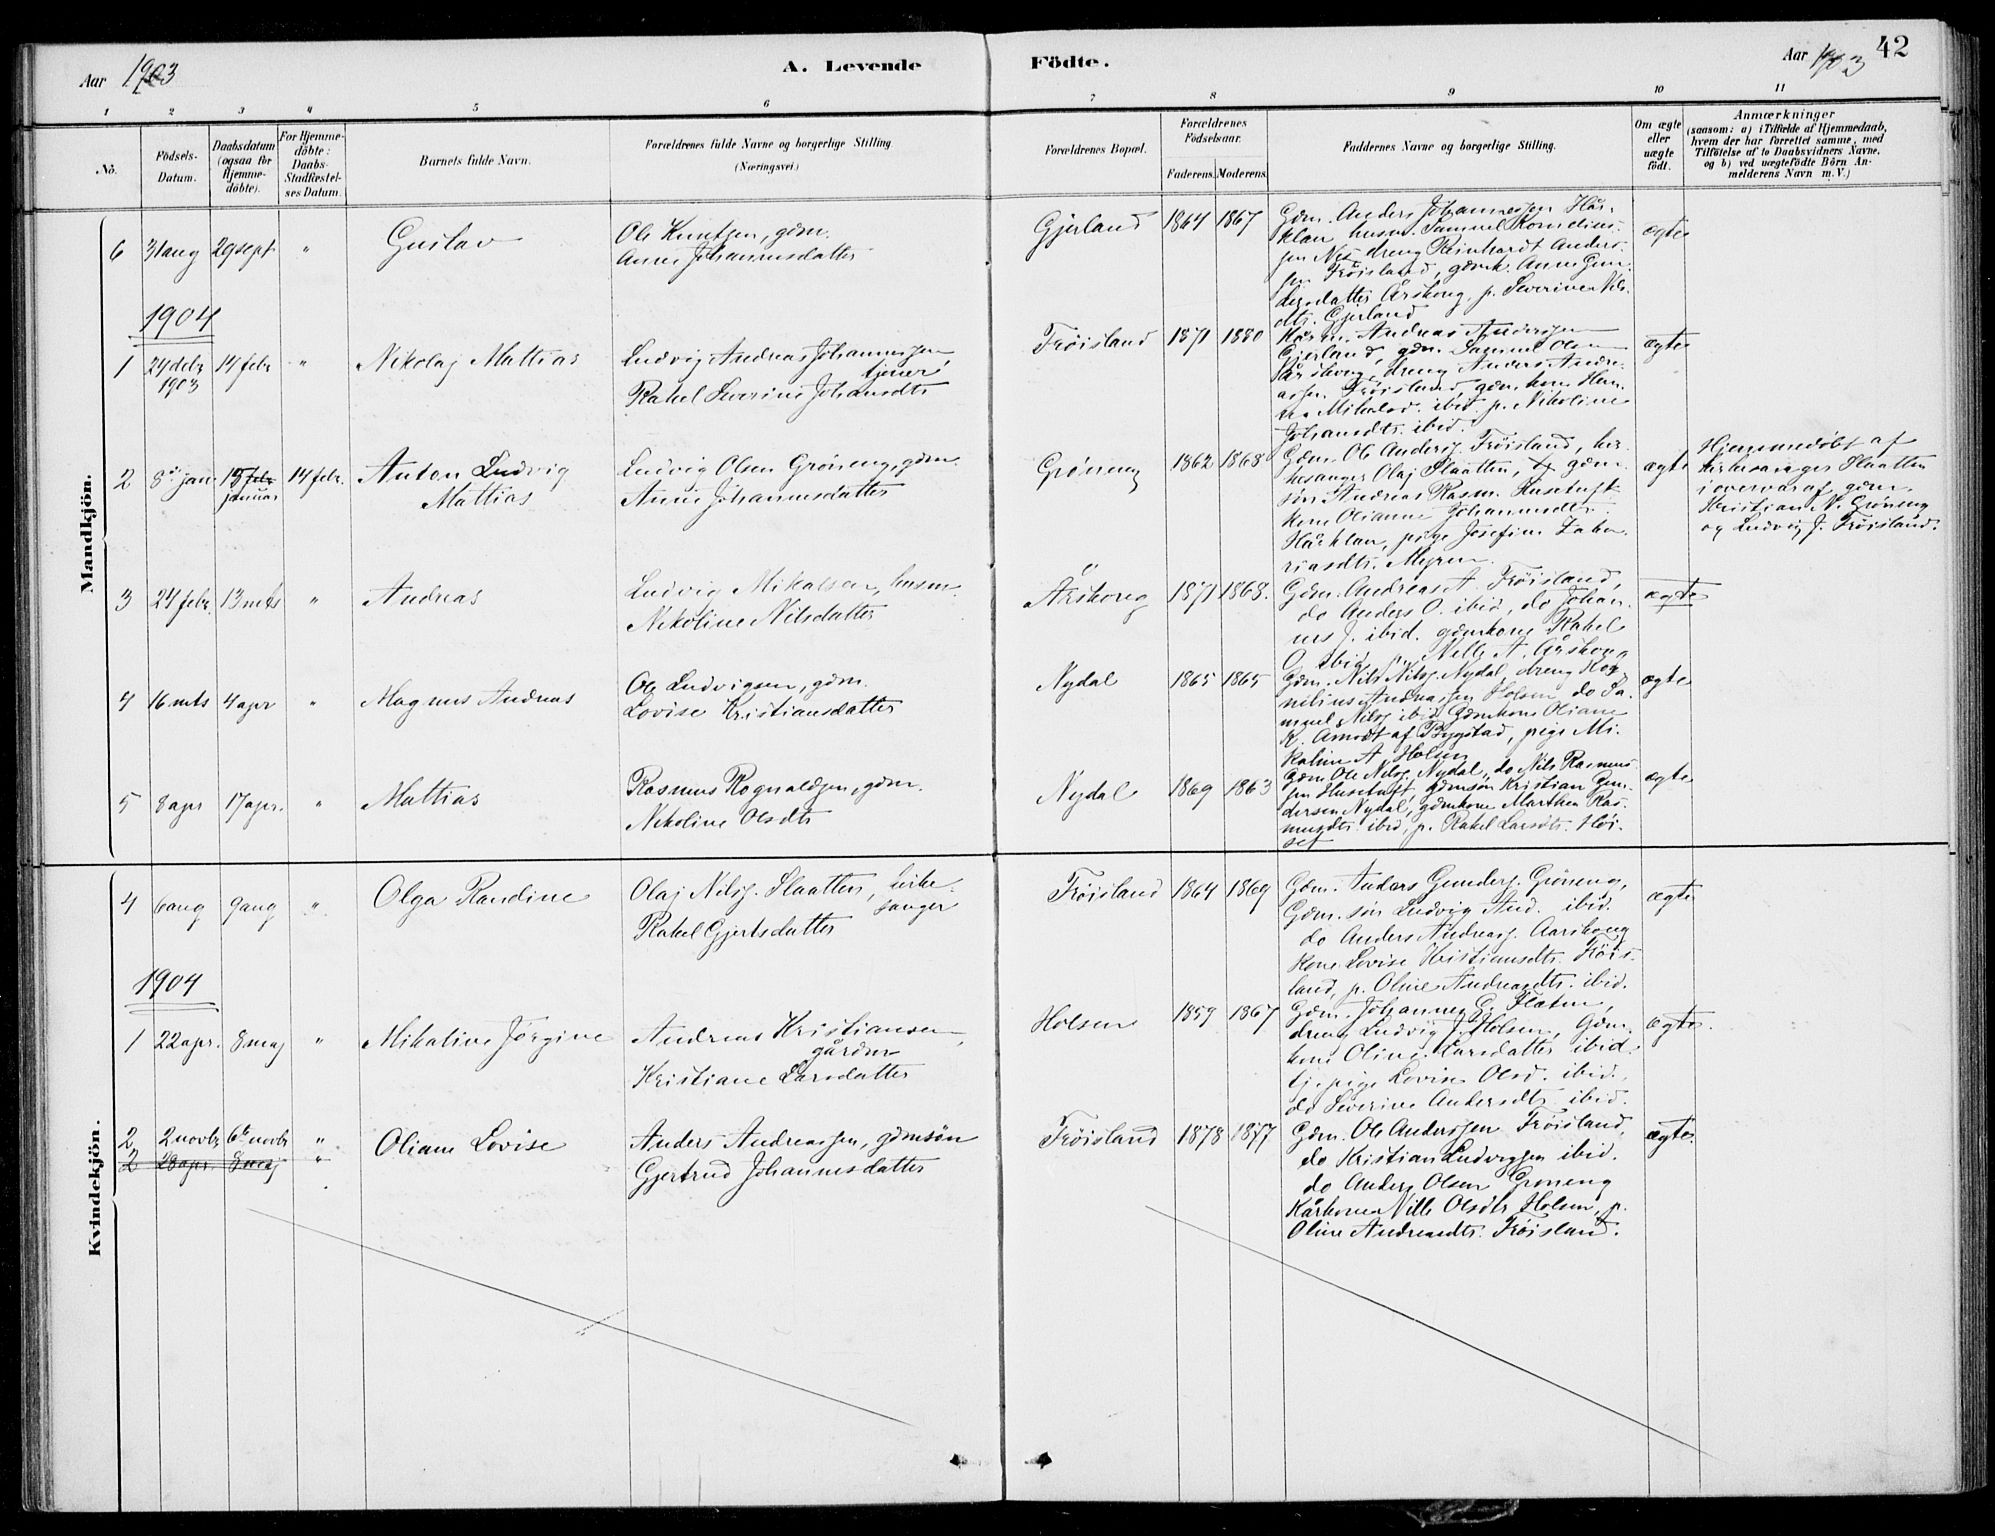 Aar 1903
A. Levende
Födte.
Aar 1903
42
1 2 3 4 5 6 7 8 9 10 11
No.
Födsels-
Datum.
Daabsdatum
(ogsaa for
Hjemme-
döbte).
For Hjemme-
döbte:
Daabs-
Stadfæstel-
ses Datum.
Barnets fulde Navn.
Forældrenes fulde Navne og borgerlige Stilling.
(Næringsvei.)
Forældrenes Bopæl.
Forældrenes
Födselsaar.
Faderens. Moderens.
Faddernes Navne og borgerlige Stilling.
Om ægte
eller
uægte
födt.
Anmærkninger
(saasom: a) i Tilfælde af Hjemmedaab,
hvem der har forrettet samme, med
Tilföielse af to Daabsvidners Navne,
og b) ved uægtefödte Börn An-
melderens Navn m. V.)
Mandkjön.
6 31 aug 29 sept. " Gustav
Ole Knutsen, gdm.
Anne Johannesdatter
Gjerland 1864 1867
Gdm. Anders Johannessen Hår-
klau, husm. Samuel Kornelius-
sen Nes, dreng Reinhardt Anders-
sen Frøisland, gdmk. Anne Gun-
dersdatter Årskoug, p. Severine Nils-
dtr. Gjerland
ægte
1904
1 24 debr 1903 14 febr " Nikolaj Mattias
Ludvig Andreas Johannessen,
tjener
Rakel Severine Johansdtr
Frøisland 1871 1880
Kårm. Andreas Anderssen
Gjerland, gdm. Samuel Olsen
Årskoug, dreng Anders Andre-
assen Frøisland, gdm.kone Han-
na Mikalsd. ibid. p. Nikoline
Johansdtr. ibid.
ægte
2 8de jan. 15 febr januar 14 febr. Anton Ludvig
Mattias
Ludvig Olsen Grøneng, gdm.
Anne Johannesdatter
Grøneng 1862 1868
Gdm. Ole Anders. Frøisland, kir-
kesanger Olaj Slaatten, gdm.
søn Andreas Rasm. Husetuft
kone Olianne Johannesdtr.
Hårklau, pige Josefine Zaka-
riasdtr. Myren
ægte
Hjemmedøbt af
kirkesanger Slaatten
i overvær af gdm.
Kristian N. Grøneng
og Ludvig J. Frøisland.
3 24 febr. 13 mts " Andreas
Ludvig Mikalsen, husm.
Nikoline Nilsdatter
Årskoug 1871 1868.
Gdm. Andreas A. Frøisland,
do Anders O. ibid, do Johan-
nes J. ibid. gdmkone Rakel
O. ibid. p. Nille A. Årskoug
ægte
4 16 mts 4 apr " Magnus Andreas
Ole Ludvigsen, gdm.
Lovise Kristiansdatter
Nydal 1865 1865
Gdm. Nils Nilss. Nydal, dreng Kor-
nilius Andreassen Holsen do Sa-
muel Nilss. ibid. Gdmkone Oliane
K. Amodt af Bygstad, pige Mi-
kaline A. Holsen
ægte
5 8 apr 17 apr. " Mattias
Rasmus Rognaldsen, gdm.
Nikoline Olsdtr
Nydal 1869 1863
Gdm. Ole Nilss. Nydal, do Nils Rasmus-
sen Husetuft, gdmsøn Kristian Gun-
dersen Nydal, gdmkone Marthea Ras-
musdtr. ibid, p. Rakel Larsdtr. Høi-
set
ægte
Kvindekjön.
4 6 aug 9 aug " Olga Randine
Olaj Nilss. Slaatten, kirke-
sanger
Rakel Gjertsdatter
Frøisland 1864 1869
Gdm. Anders Gunders. Grøneng,
Gdm. søn Ludvig And. ibid.
do Anders Andreass. Aarskoug
kone Lovise Kristiansdtr. Frøis-
land, p. Oline Andreasdtr. ibid.
ægte
1904
1 22 apr. 8 maj " Mikaline Jørgine
Andreas Kristiansen,
gårdm
Kristiane Larsdatter
Holsen 1859 1867
Gdm. Johannes E. Flaten,
dreng Ludvig J. Holsen, Gdm.
kone Oline Larsdatter ibid.
tj. pige Lovise Olsd. ibid.
do Severine Andersdtr. ibid.
ægte.
2 2 novbr 6te novbr " Oliane Lovise
2 28 apr. 8 maj "
Anders Andreassen, gdmsøn
Gjertrud Johannesdatter
Frøisland 1878 1877
Gdm. Ole Anderssen Frøisland,
do Kristian Ludvigsen ibid.
do Anders Olsen Grøneng
Kårkone Nille Olsdtr Holsen, p.
Oline Andreasdtr. Frøisland.
ægte